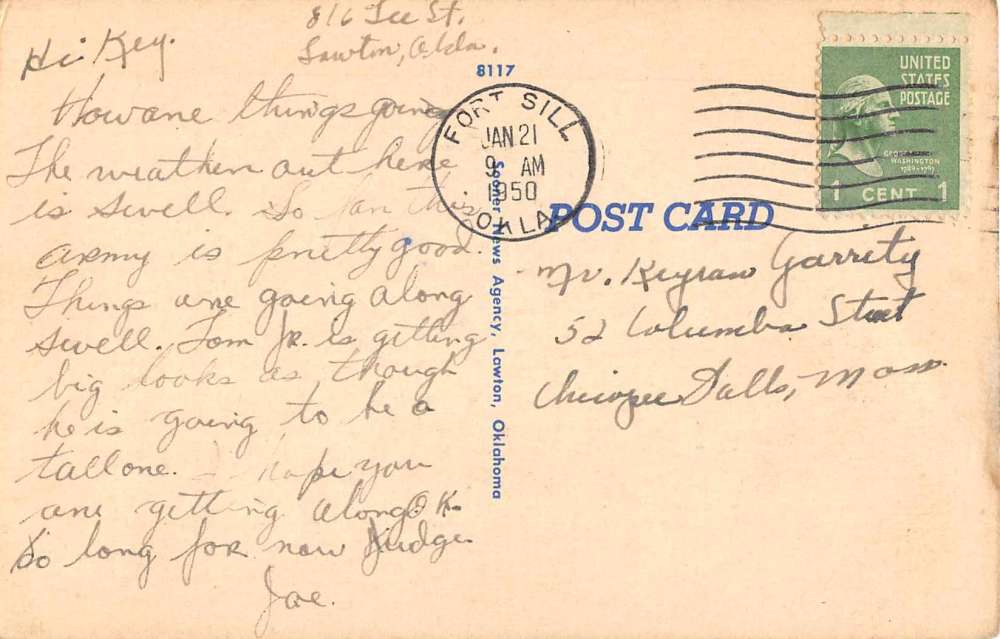 816 Lee St.
Lawton, Okla.
Hi Key.
How are things going
The weather out here
is swell. So far this
army is pretty good.
Things are going along
swell. Tom Jr. is getting
big looks as though
he is going to be a
tall one. I hope you
are getting along O.K.
So long for now Judge
Joe.
8117
Sooner News Agency, Lawton, Oklahoma
FORT SILL
JAN 21
9 AM
1950
OKLA.
POST CARD
UNITED
STATES
POSTAGE
GEORGE WASHINGTON
1789-1797
1 CENT 1
Mr. Keyran Garrity
52 Columba Street
Chicopee Falls, Mass.